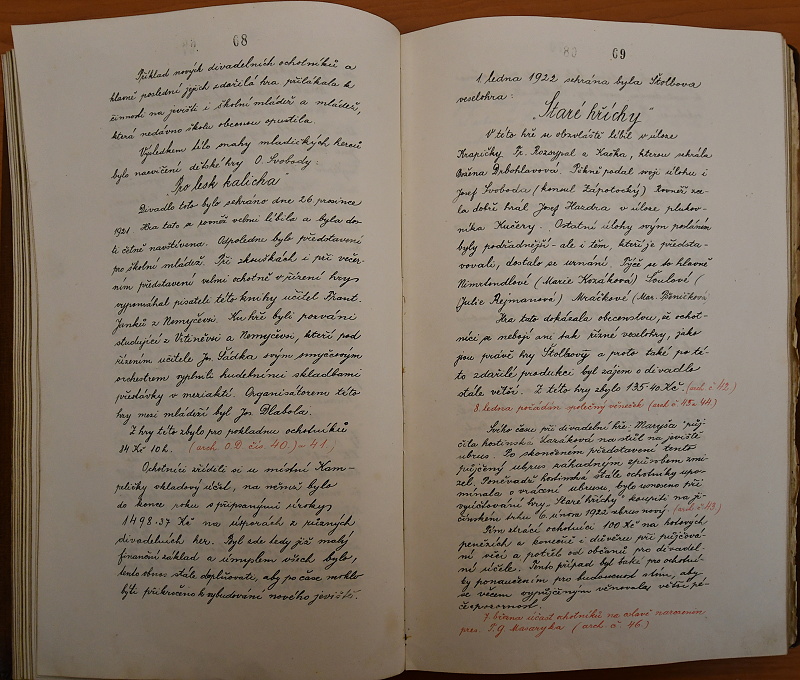 68
Příklad nových divadelních ochotníků a
hlavně poslední jejich zdařilá hra přilákala k
činnosti na jevišti i školní mládež a mládež,
která nedávno školu obecnou opustila.
Výsledkem této snahy mladických herců
bylo nacvičení dětské hry O. Svobody:
"Pro lesk kalicha"
Divadlo toto bylo sehráno dne 26 prosince
1921. Hra tato se rovněž velmi líbila a byla dos-
ti četně navštívena. Odpoledne bylo představení
pro školní mládež. Při zkouškách i při večer-
ním představení velmi ochotně v řízení hry
vypomáhal pisateli této knihy učitel Frant.
Janků z Nemyčevsi. Ku hře byli pozváni
studující z Vitiněvsi a Nemyčevsi, kteří pod
řízením učitele Jos. Sádka svým smyčcovým
orchestrem vyplnili hudebními skladbami
přestávky v meziaktí. Organisátorem této
hry mezi mládeží byl Jos. Dlabola.
Z hry této zbylo pro pokladnu ochotníků
84 Kč 10 h. (arch. O.D. čís. 40.) a 41.)
Ochotníci zřídili si u místní Kam-
peličky vkladový účet, na němž bylo
do konce roku s připsanými úroky
1498.37 Kč na úsporách z různých
divadelních her. Byl zde tedy již malý
finanční základ a úmyslem všech bylo,
tento obnos stále doplňovati, aby po čase mohlo
býti přikročeno k vybudování nového jeviště.
69
1 ledna 1922 sehrána byla Štolbova
veselohra:
"Staré hříchy"
V této hře se obzvláště líbil v úloze
Krapičky Fr. Rozsypal a Kačka, kterou sehrála
Božena Drbohlavová. Pěkně podal svoji úlohu i
Josef Svoboda (konsul Zápotocký) rovněž zce-
la dobře hrál Josef Hazdra v úloze plukov-
níka Kučery. Ostatní úlohy svým posláním
byly podřadnější - ale i těm, kteří je předsta-
vovali, dostalo se uznání. Týče se to hlavně
Nimrtondlové (Marie Kozáková) Soulové (
Julie Rejmanová) Mráčkové (Mar. Pěničková
Hra tato dokázala obecenstvu, že ochot-
níci se nebojí ani tak řízné veselohry, jako
jsou právě hry Štolbovy a proto také po té-
to zdařilé produkci byl zájem o divadlo
stále větší. Z této hry zbylo 135.40 Kč (arch. č. 42.)
8. ledna pořádán společný věneček (arch č. 43 a 44.)
Svého času při divadelní hře "Maryša" půj-
čila hostinská Lazáková na stůl na jeviště
ubrus. Po skončeném představení tento
půjčený ubrus záhadným způsobem zmi-
zel. Poněvadž hostinská stále ochotníky upo-
mínala o vrácení ubrusu, bylo usneseno při
vyúčtování hry "Staré hříchy" koupiti na ji-
čínském trhu 6. února 1922 ubrus nový. (arch. č. 43.)
Tím ztrácí ochotníci 100 Kč na hotových
penězích a konečně i důvěru při půjčová-
ní věcí a potřeb od občanů pro divadel-
ní účele. Tento případ byl také pro ochotní-
ky ponaučením pro budoucnost v tom, aby
se věcem vypůjčeným věnovala větší pé-
če a pozornost.
7. března účast ochotníků na oslavě narozenin
pres. T. G. Masaryka (arch. č. 46.)